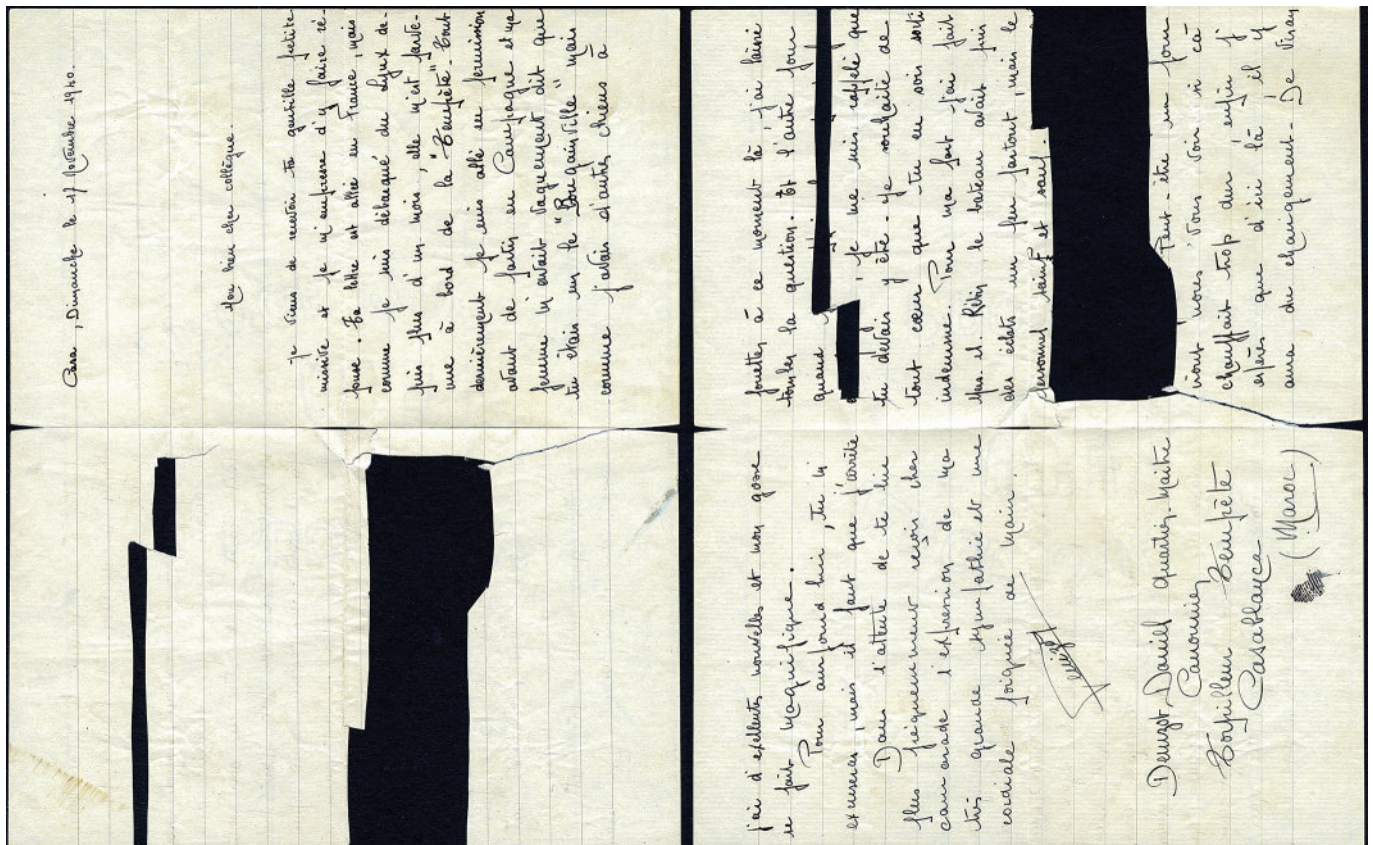 Casa, Dimanche le 17 Novembre 1940.
Mon bien cher collègue.
Je viens de recevoir ta gentille petite
missive et je m'empresse d'y faire ré-
ponse. Ta lettre est allée en France, mais
comme je suis débarqué du Lynx de-
puis plus d'un mois, elle m'est parve-
nue à bord de la "Tempête". Tout
dernièrement je suis allé en permission
avant de partir en Campagne et ma
femme m'avait vaguement dit que
tu étais sur le "Bougainville" mais
comme j'avais d'autres chiens à
fouetter à ce moment là, j'ai laissé
tomber la question. Et l'autre jour
quand
, je me suis rappelé que
tu devais y être. Je souhaite de
tout cœur que tu en sois sorti
indemne. Pour ma part j'ai fait
le bateau avait pris
des éclats un peu partout, mais le
personnel sain et sauf.
Peut-être un jour
vous voir si cà
chauffait trop dur enfin j'
espère que d'ici là il y
aura du changement - De Vinay
j'ai d'excellentes nouvelles et mon gosse
se fait magnifique.
Pour aujourd'hui, tu m
excuseras, mais il faut que j'arrête
Dans l'attente de te lire
plus fréquemment reçois cher
camarade l'expression de ma
très grande sympathie et une
cordiale poignée de main.
Denizot Daniel Quartier-Maître
Canonnier
Torpilleur Tempête
Casablanca
(Maroc)